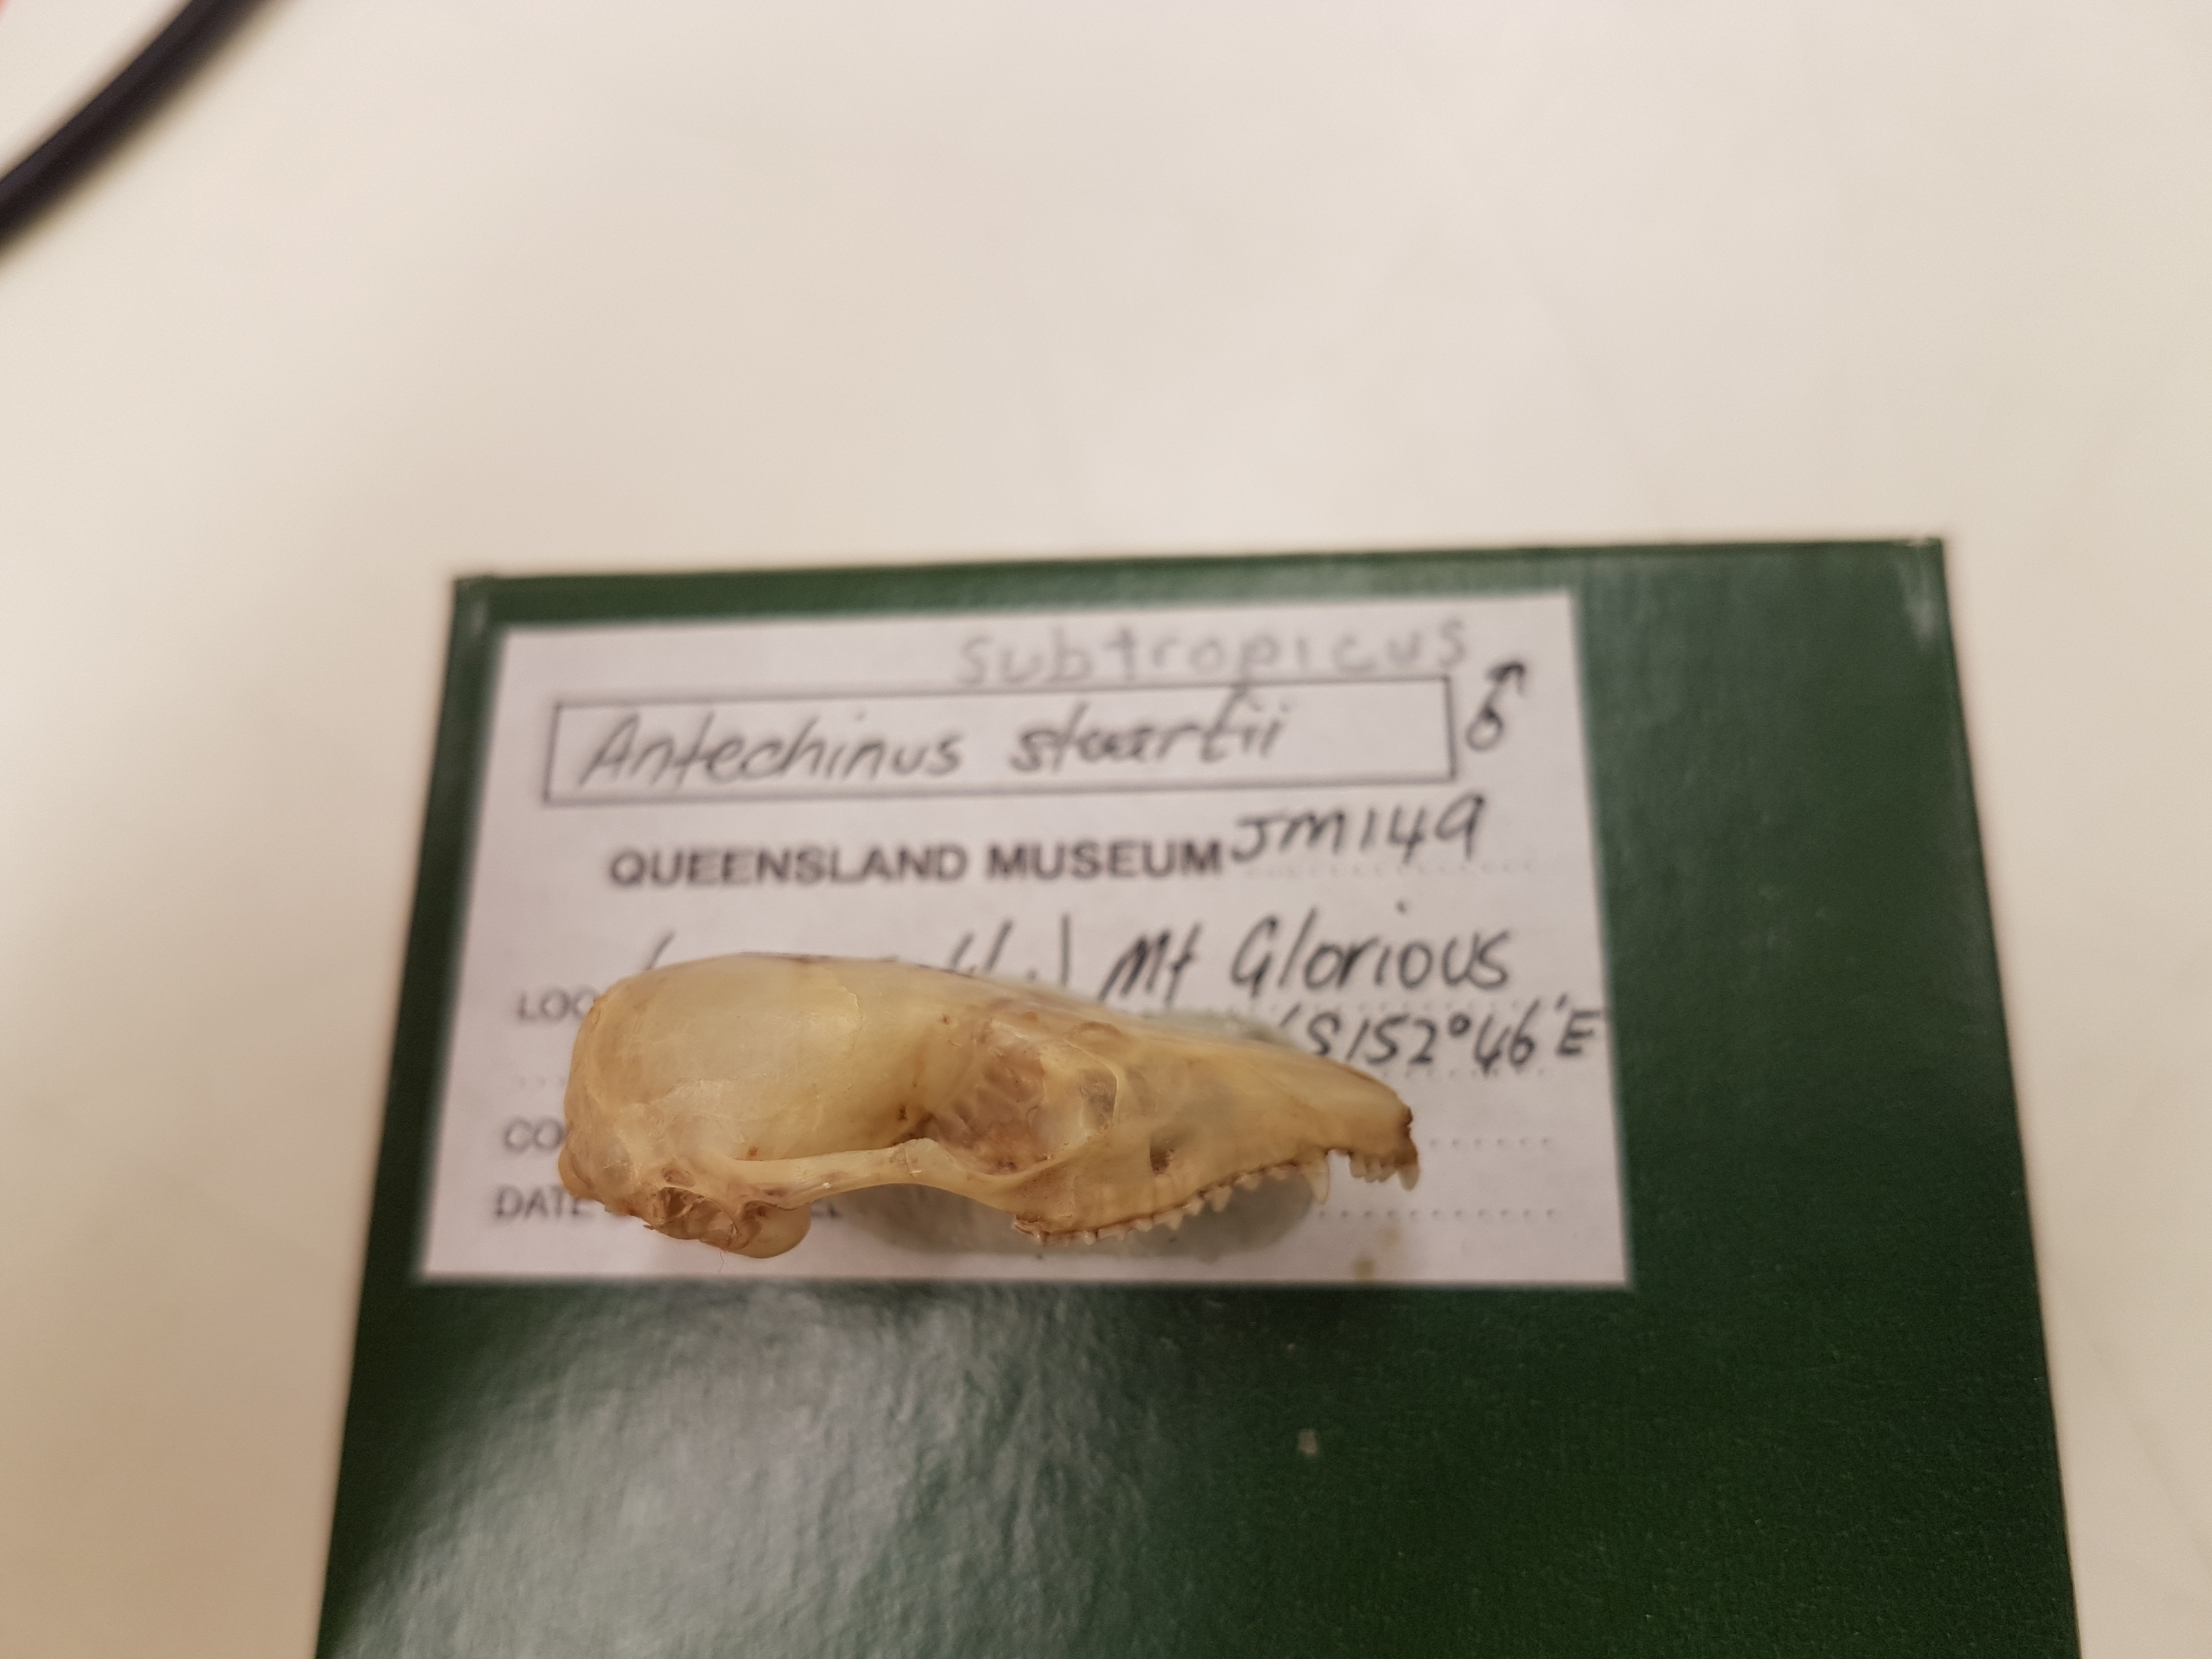 subtropicus
Antechinus stuartii ♂
QUEENSLAND MUSEUM JM149
Mt Glorious
S152°46'E
DATE